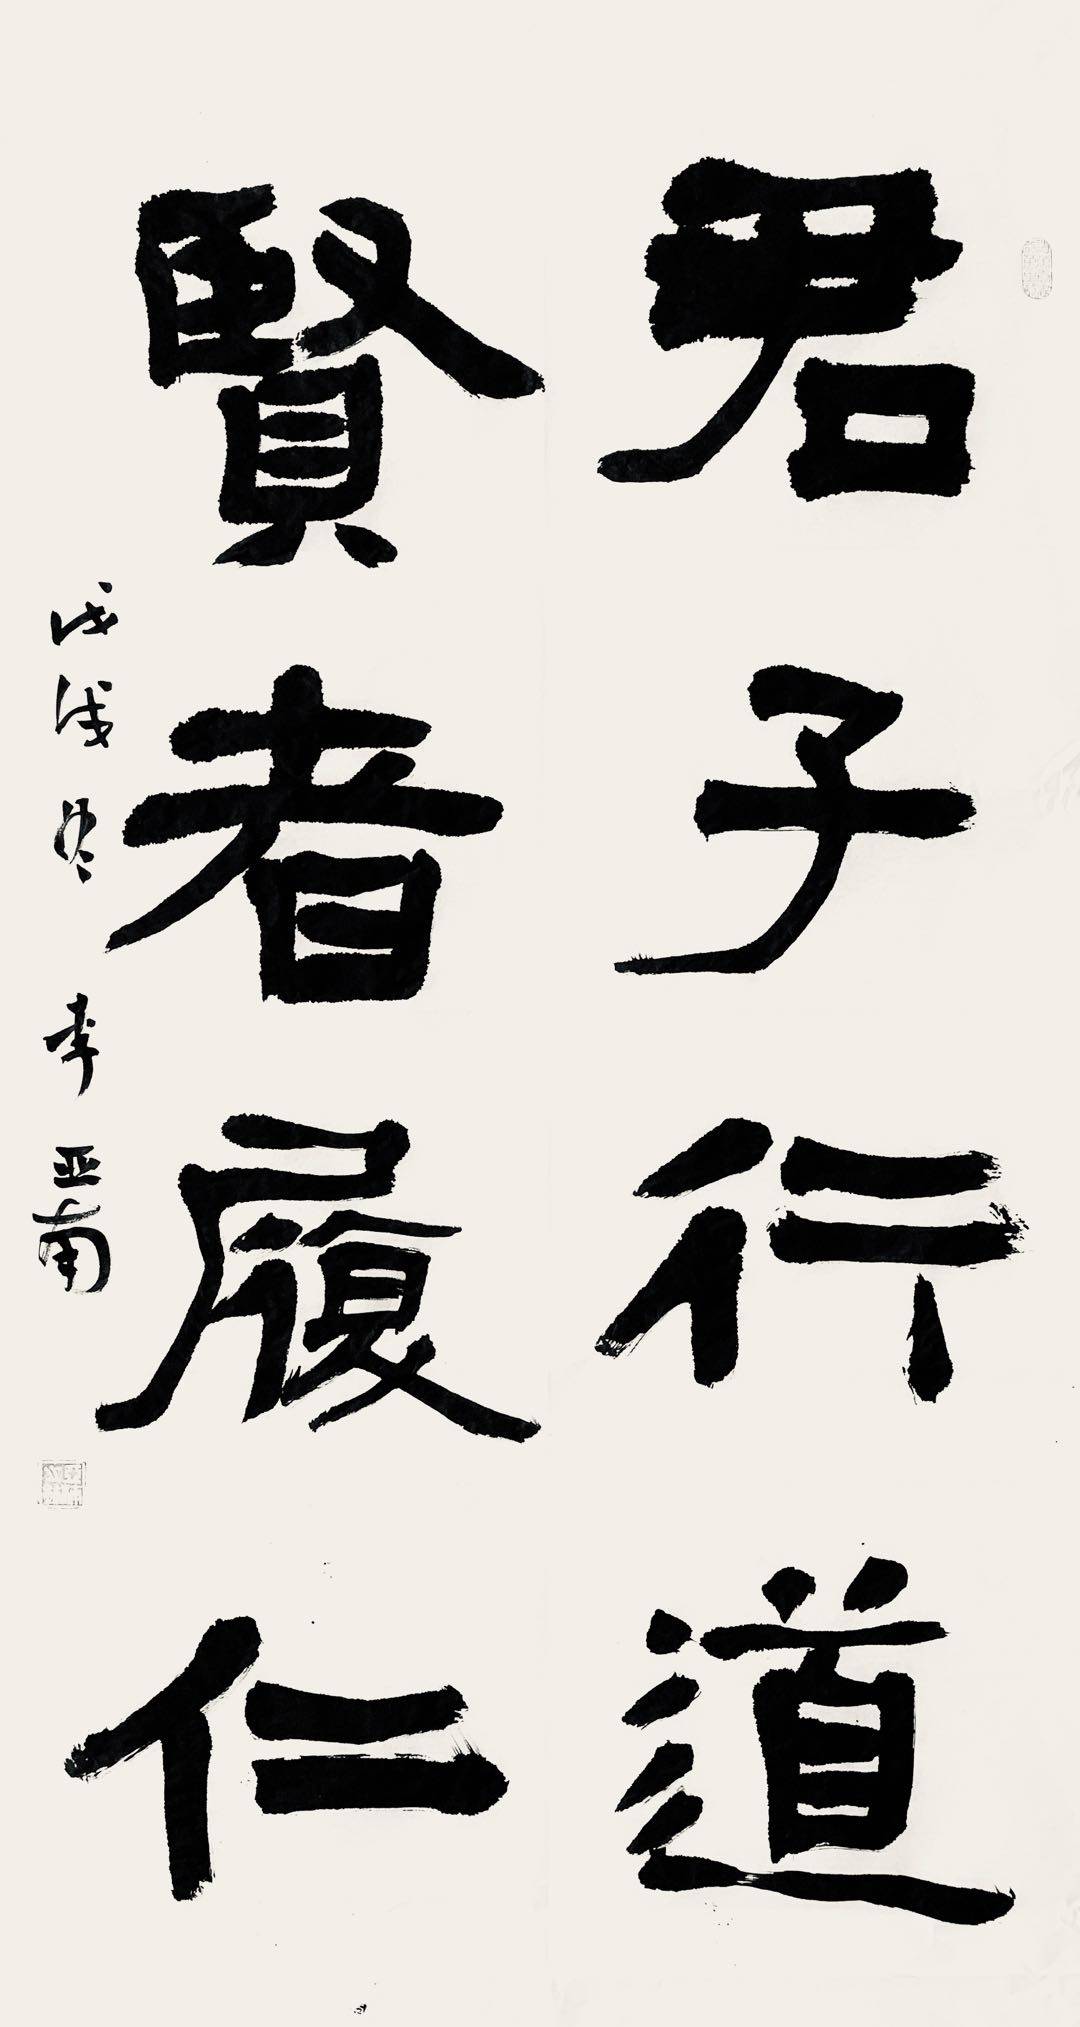 君子行道
賢者履仁
戊戌冬 李亚南